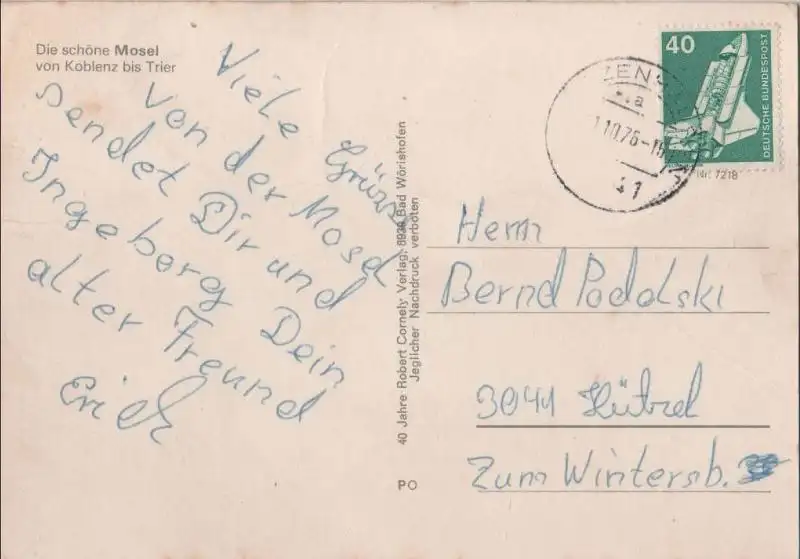 Die schöne Mosel
von Koblenz bis Trier
Viele Grüsse
von der Mosel
sendet Dir und
Ingeborg Dein
alter Freund
Erich
40 Jahre Robert Cornely Verlag, 8939 Bad Wörishofen
Jeglicher Nachdruck verboten
PO
40
DEUTSCHE BUNDESPOST
a
1.10.76-18
41
Nr. 7218
Herrn
Bernd Podolski
3041 Hützel
Zum Wintersb.